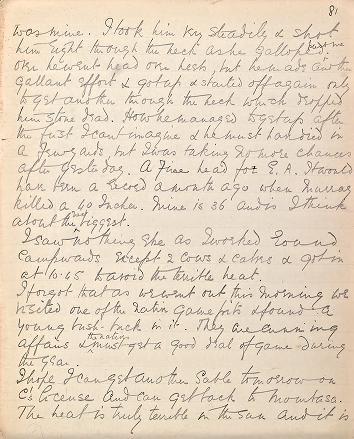 81
was mine. I took him very steadily & shot
him right through the neck as he galloped past me
over he went head over heels, but he made another
gallant effort & got up & started off again only
to get another through the neck which dropped
him stone dead. How he managed to get up after
the first I cant imagine & he must have died in
a few yards, but I was taking no more chances
after yesterday. A fine head for E. A. It would
have been a record a month ago when Murray
killed a 40 Inches. Mine is 36 and is I think
about the 2nd biggest.
I saw nothing else as I worked round
Campwards except 2 cows & calves & got in
at 10.45 to avoid the terrible heat.
I forgot that as we went out this morning we
visited one of the native game pits & found a
young bush-buck in it. They are cunning
affairs & the natives must get a good deal of game during
the year.
I hope I can get another Sable tomorrow on
C's license and can get back to Mombasa.
The heat is truly terrible in the sun and it is